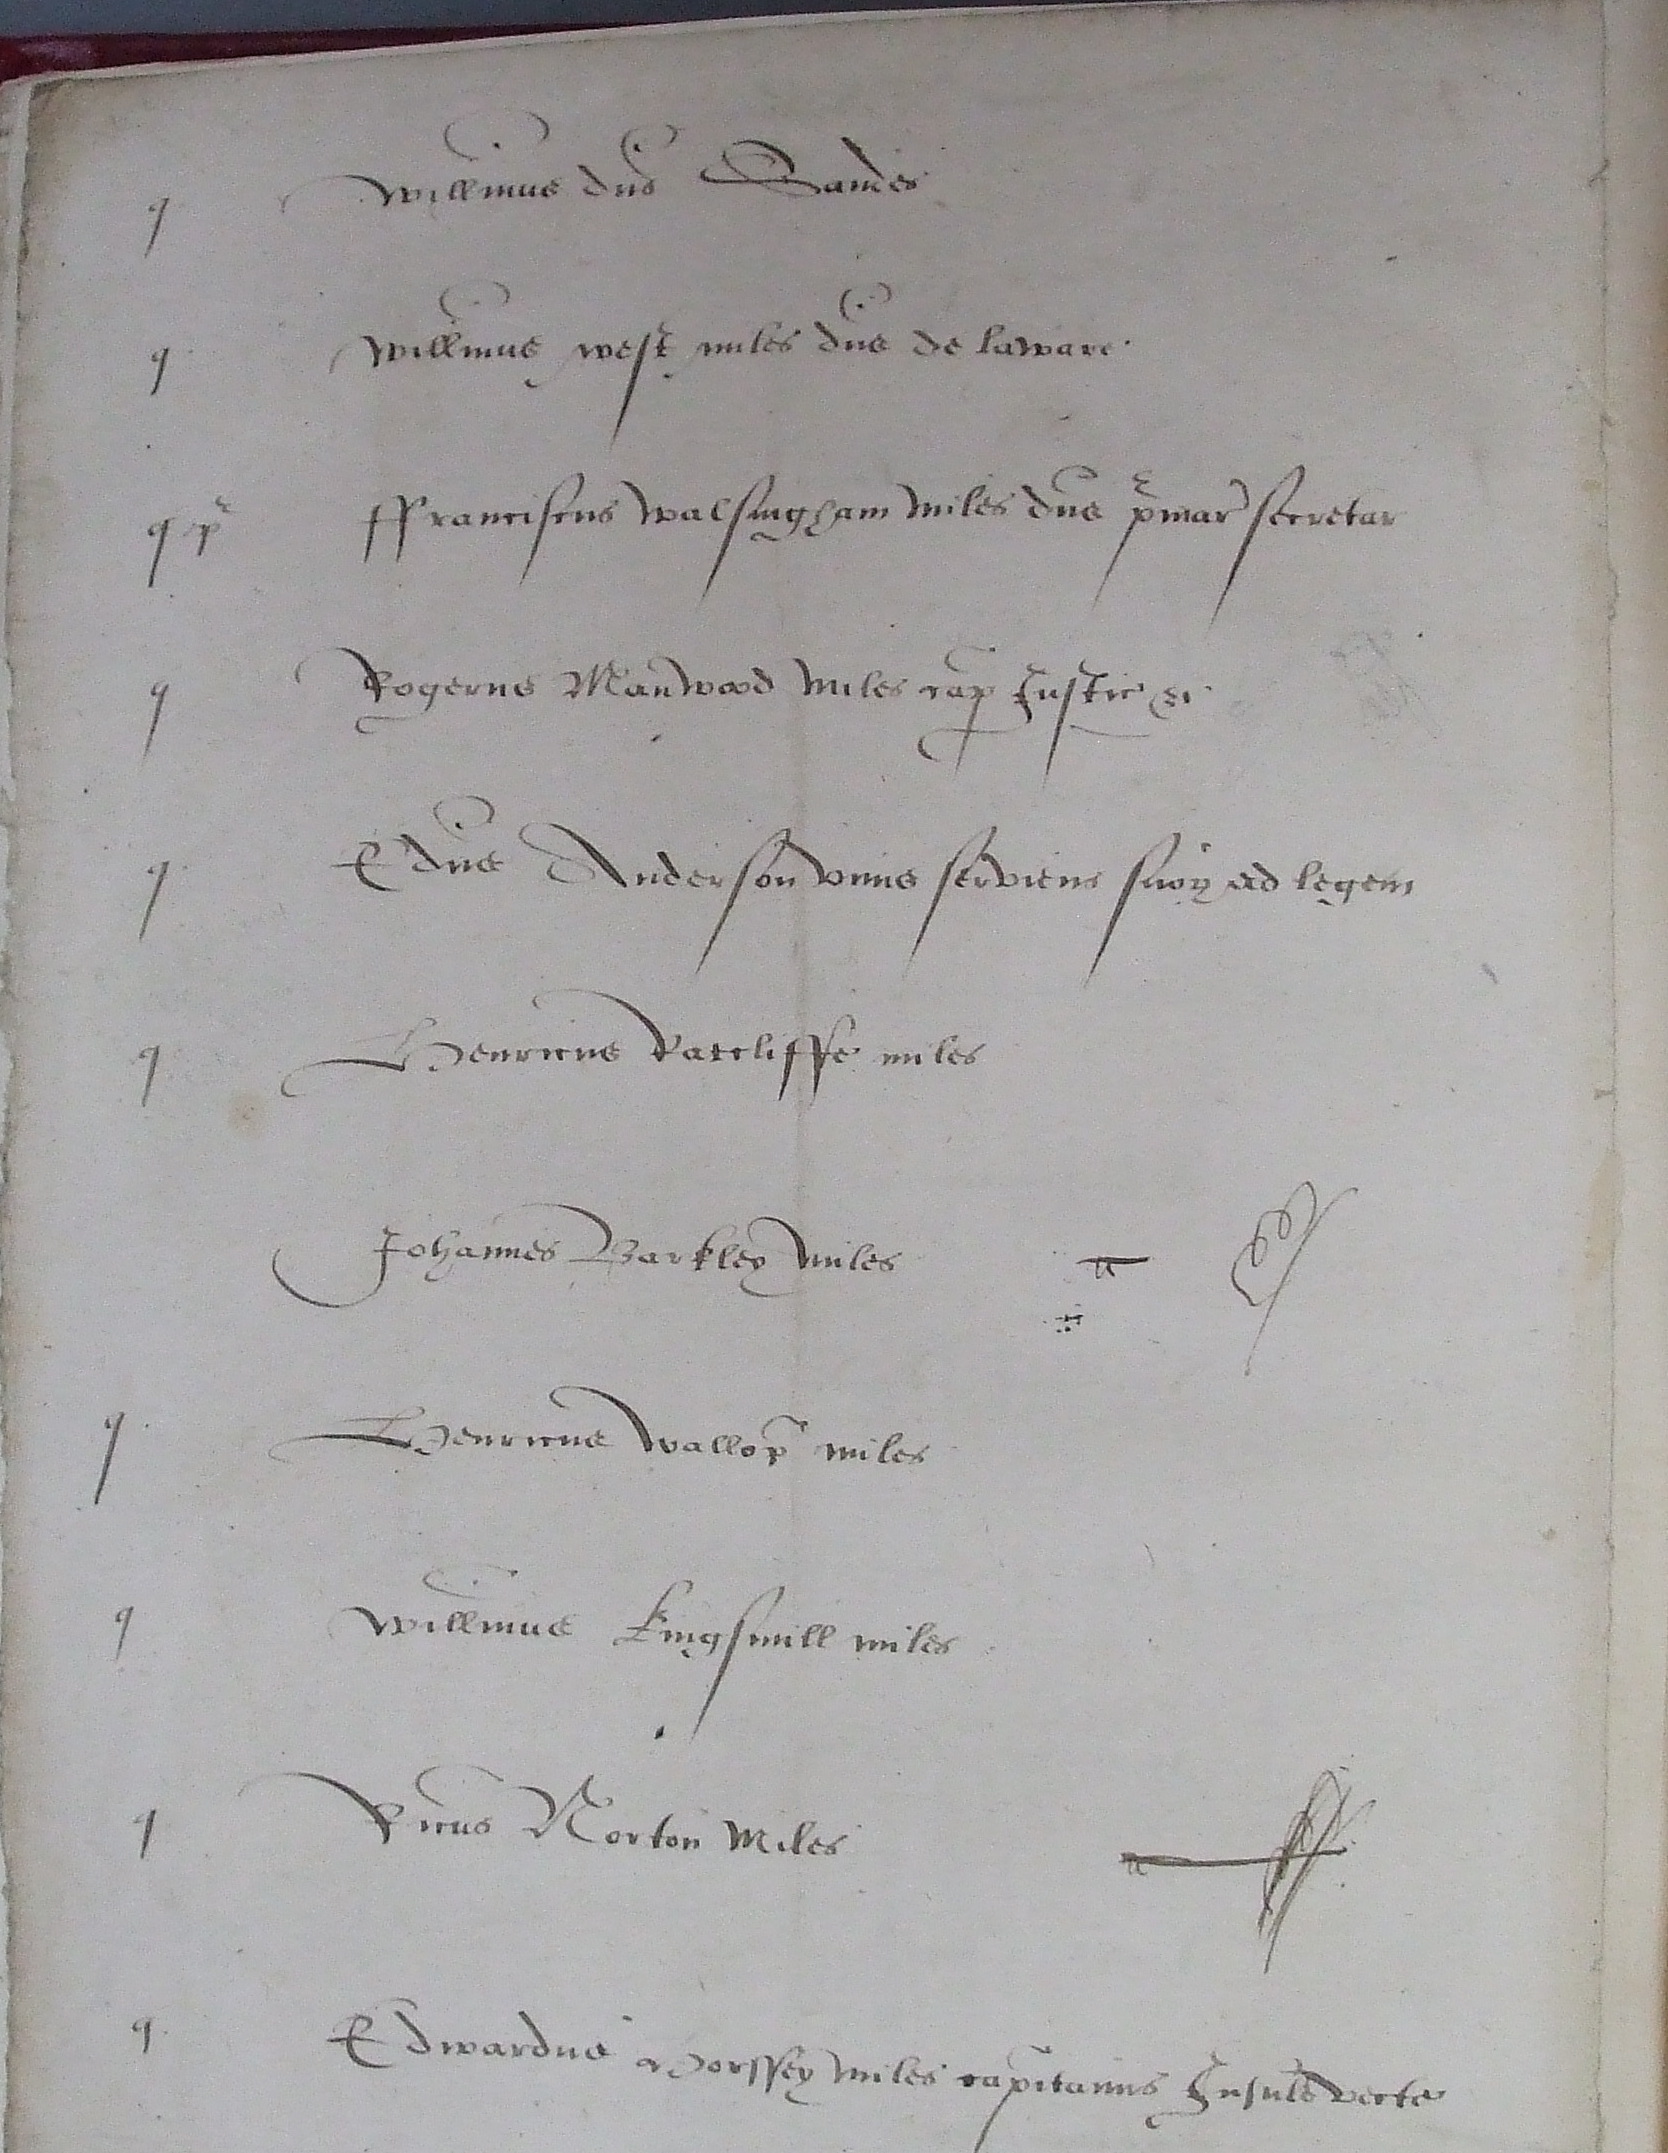 q Willmus dns Sandes
q Willmus West miles dns de Laware
q pr ffranciscus Walsingham Miles dns prmar secretar
q Rogerus Manwood Miles cap Justic
q Edus Anderson unus serviens suor ad legem
q Henricus Ratcliffe miles
Johannes Barkley Miles
q Henricus Wallop miles
q Willmus Kingsmill miles
q Ricus Norton Miles
q Edwardus Horssey Miles capitanus Insule vecte